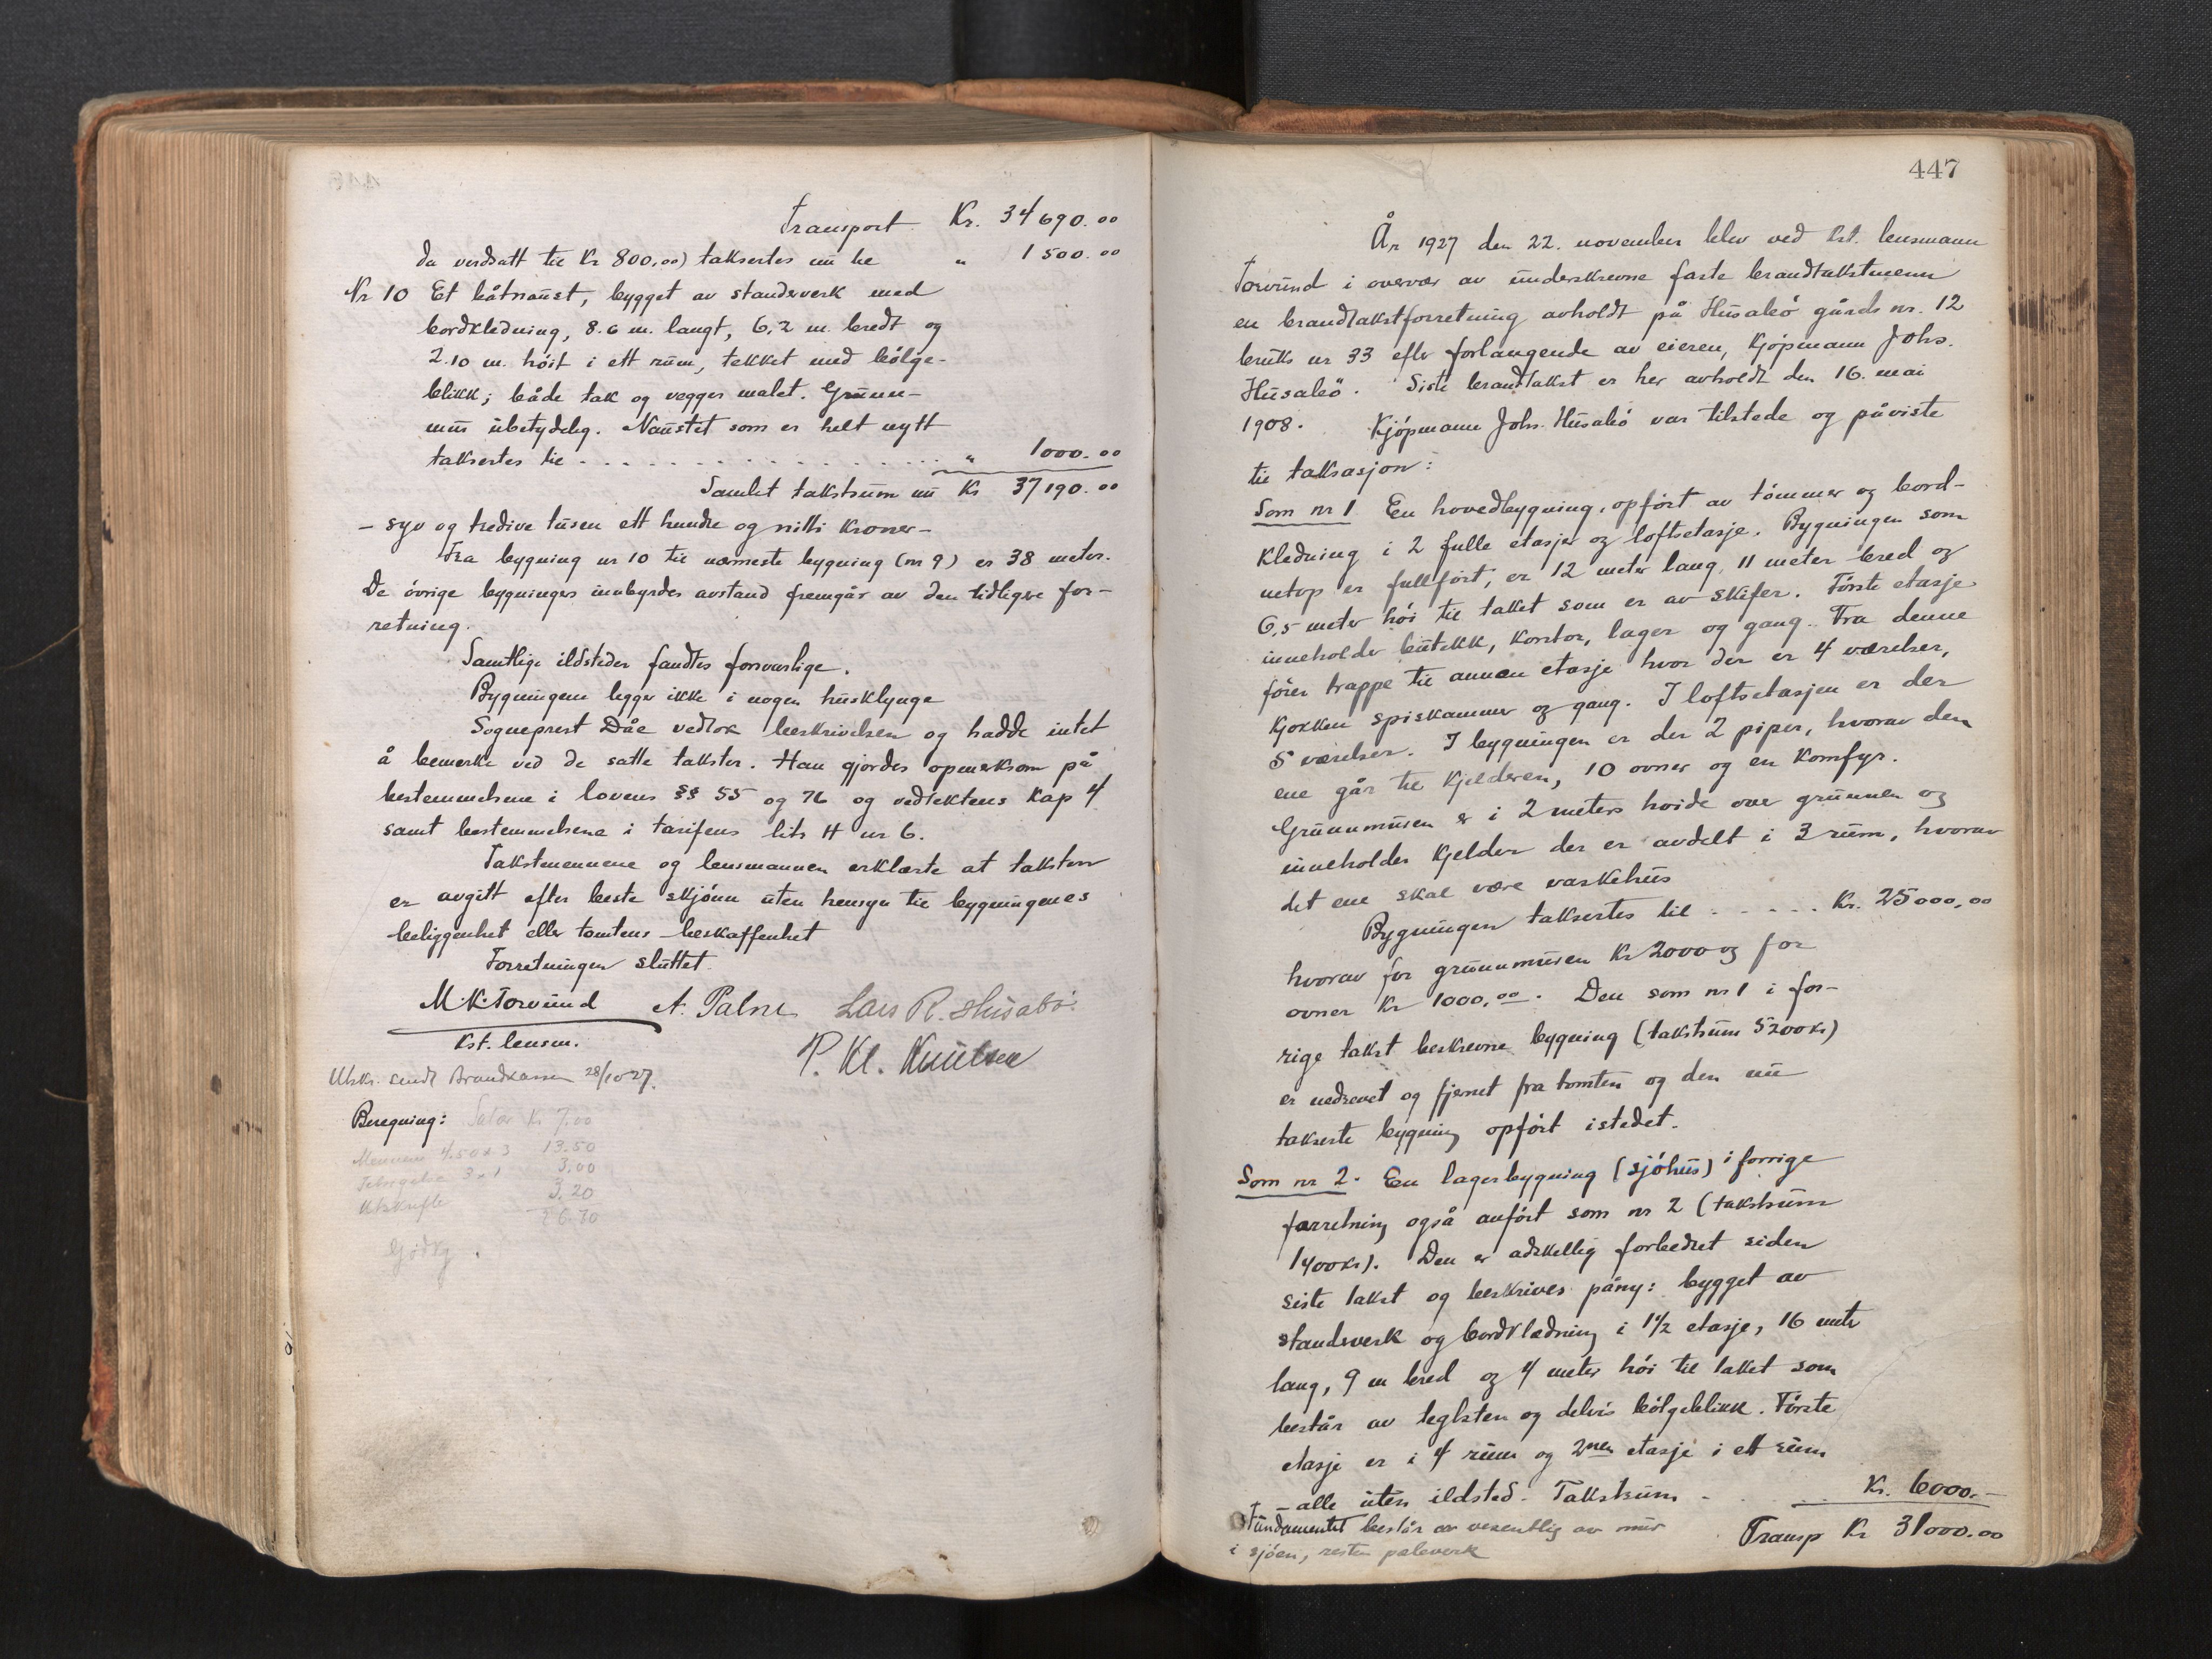 Transport Kr. 34690.00
da verdsatt til Kr 800,00) taksertes nu til " 1500.00
Nr 10 Et båtnaust, bygget av standerverk med
bordkledning, 8.6 m. langt, 6,2 m. bredt og
2.10 m. höit i ett rum, tekket med bölge-
blikk; både tak og vegger malet. Grunn-
mur ubetydelig. Naustet som er helt nytt
taksertes til . . . . . . . . . . . . . . . . " 1000.00
Samlet takstsum nu Kr 37190.00
- syv og tredive tusen ett hundre og nitti kroner-
Fra bygning nr 10 til nærmeste bygning (nr 9) er 38 meter.
De övrige bygningers innbyrdes avstand fremgår av den tidligere for-
retning.
Samtlige ildsteder fandtes forsvarlige.
Bygningene ligger ikke i nogen husklynge
Sogneprest Dåe vedtok beskrivelsen og hadde intet
å bemerke ved de satte takster. Han gjordes opmerksom på
bestemmelsene i lovens §§ 55 og 76 og vedtektens Kap 4
samt bestemmelsene i tarifens lits H nr 6.
Takstmennene og lensmannen erklærte at taksten
er avgitt efter beste skjönn uten hensyn til bygningenes
beliggenhet eller tomtens beskaffenhet
Forretningen sluttet.
M. K. Torvund A. Palne Lars R. Husabö.
Kst. lensm. P. Kl. Knutsen
Utskr. sendt Brandkassen 28/10-27.
Beregning: Salær Kr 7,00
Mennene 4.50 x 3 13.50
3 x 1 3,00
Utskrifter 3,20
26.70
447
År 1927 den 22. november blev ved kst. lensmann
Torvund i overvær av underskrevne faste brandtakstmenn
en brandtakstforretning avholdt på Husabö gårds nr. 12
bruks nr 33 efter forlangende av eieren, Kjöpmann Johs.
Husabö. Siste brandtakst er her avholdt den 16. mai
1908. Kjöpmann Johs. Husabö var tilstede og påviste
til taksasjon:
Som nr 1 En hovedbygning, opfört av tömmer og bord-
kledning i 2 fulle etasjer og loftsetasje. Bygningen som
netop er fullfört, er 12 meter lang, 11 meter bred og
6,5 meter höi til taket som er av skifer. Förste etasje
inneholder butikk, kontor, lager og gang. Fra denne
förer trappe til annen etasje hvor der er 4 værelser,
kjökken spiskammer og gang. I loftsetasjen er der
5 værelser. I bygningen er der 2 piper, hvorav den
ene går til kjelderen, 10 ovner og en komfyr.
Grunnmuren er i 2 meters höide over grunnen og
inneholder kjelder der er avdelt i 3 rum, hvorav
det ene skal være vaskehus
Bygningen taksertes til . . . . . Kr. 25000,00
hvorav for grunnmuren Kr 2000 og for
ovner Kr 1000,00. Den som nr 1 i for-
rige takst beskrevne bygning (takstsum 5200 kr)
er nedrevet og fjernet fra tomten og den nu
takserte bygning opfört istedet.
Som nr 2. En lagerbygning (sjöhus) i forrige
forretning også anfört som nr 2 (takstsum
1400 kr). Den er adskillig forbedret siden
siste takst og beskrives påny: bygget av
standerverk og bordklædning i 1½ etasje, 16 meter
lang, 9 m bred og 4 meter höi til taket som
består av teglsten og delvis bölgeblikk. Förste
etasje er i 4 rum og 2nen etasje i ett rum
- alle uten ildsted. Takstsum . . . Kr. 6000.-
Fundamentet består av vesentlig av mur
i sjöen, resten peleverk
Transp Kr 31000.00